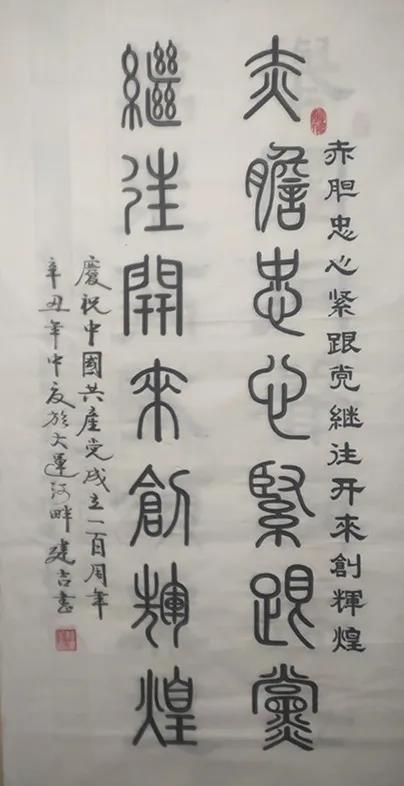 赤胆忠心紧跟党继往开来創輝煌
赤膽忠心緊跟黨
繼往開來創輝煌
慶祝中國共產党成立一百周年
辛丑年中夏於大運河畔 建吉書